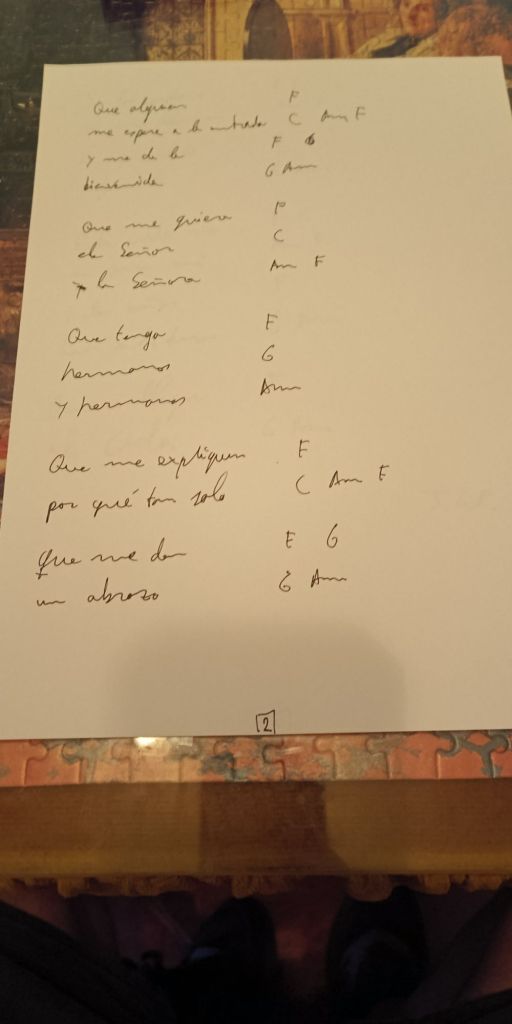 Que alguien F
me espere a la entrada C Am F
y me de la F G
bienvenida G Am
Que me quiera F
el Señor C
y la Señora Am F
Que tenga F
hermanos G
y hermanas Am
Que me expliquen F
por qué tan solo C Am F
que me den F G
un abrazo G Am
2